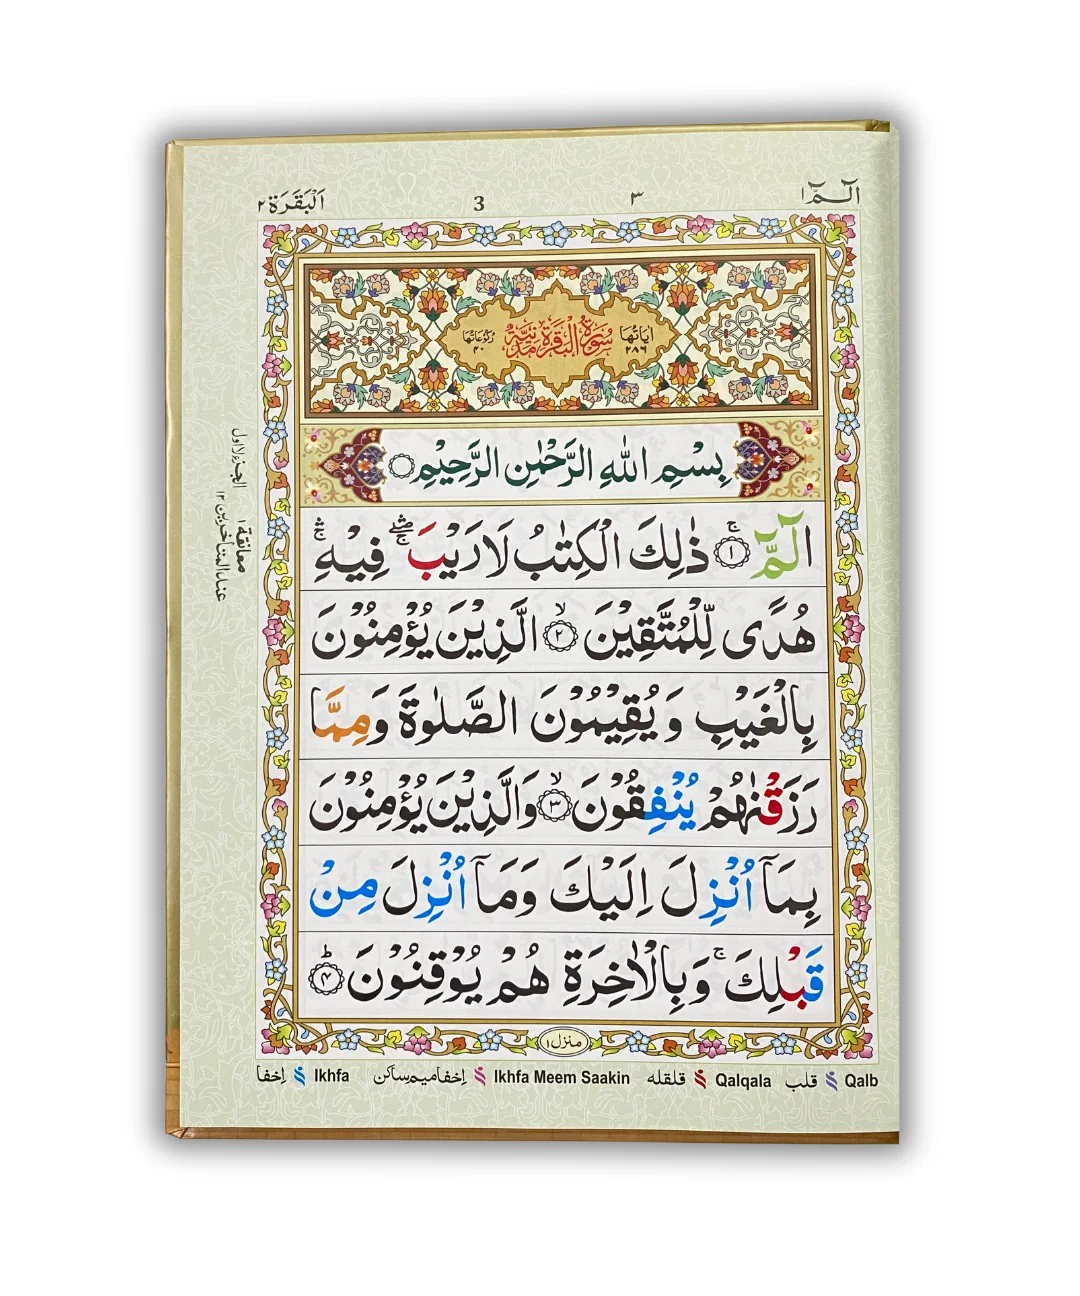 الٓمّٓ ۱ ۳ 3 اَلْبَقَرَة ۲
اٰیَاتُهَا ۲۸۶ سُوْرَةُ الْبَقَرَةِ مَدَنِیَّةٌ رُكُوْعَاتُهَا ۴۰
بِسْمِ اللّٰهِ الرَّحْمٰنِ الرَّحِیْمِ
الٓمّٓ ۚ﴿۱﴾ ذٰلِكَ الْكِتٰبُ لَا رَیْبَ ۖۛۚ فِیْهِ ۚۛ
هُدًی لِّلْمُتَّقِیْنَ ۙ﴿۲﴾ الَّذِیْنَ یُؤْمِنُوْنَ
بِالْغَیْبِ وَیُقِیْمُوْنَ الصَّلٰوةَ وَمِمَّا
رَزَقْنٰهُمْ یُنْفِقُوْنَ ۙ﴿۳﴾ وَالَّذِیْنَ یُؤْمِنُوْنَ
بِمَاۤ اُنْزِلَ اِلَیْكَ وَمَاۤ اُنْزِلَ مِنْ
قَبْلِكَ ۚ وَبِالْاٰخِرَةِ هُمْ یُوْقِنُوْنَ ؕ﴿۴﴾
منزل ۱
معانقة ۱
عند المتأخرین ۱۲
Qalb قلب Qalqala قلقله Ikhfa Meem Saakin اِخفا میم ساکن Ikhfa اِخفا